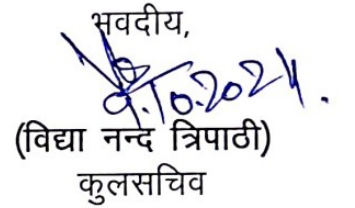 भवदीय,
9.10.2024.
(विद्या नन्द त्रिपाठी)
कुलसचिव